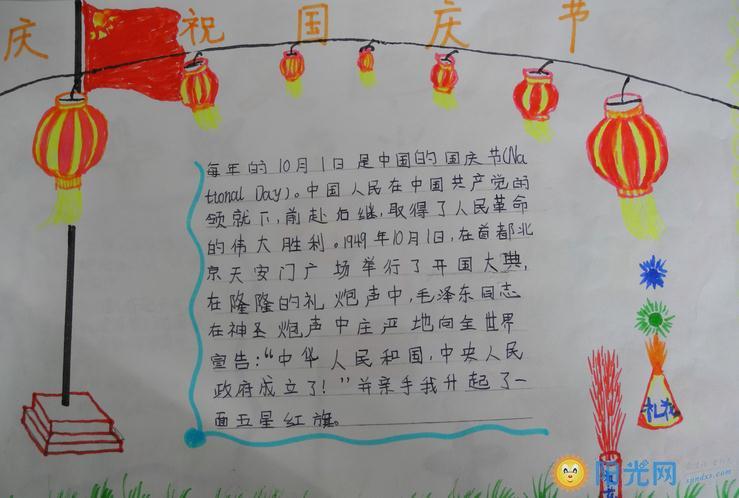 庆祝国庆节
每年的10月1日是中国的国庆节(Na
tional Day)。中国人民在中国共产党的
领就下,前赴后继,取得了人民革命
的伟大胜利。1949年10月1日,在首都北
京天安门广场举行了开国大典,
在隆隆的礼炮声中,毛泽东同志
在神圣炮声中庄严地向全世界
宣告:“中华人民和国,中央人民
政府成立了!”并亲手我升起了一
面五星红旗。
礼花
阳光网